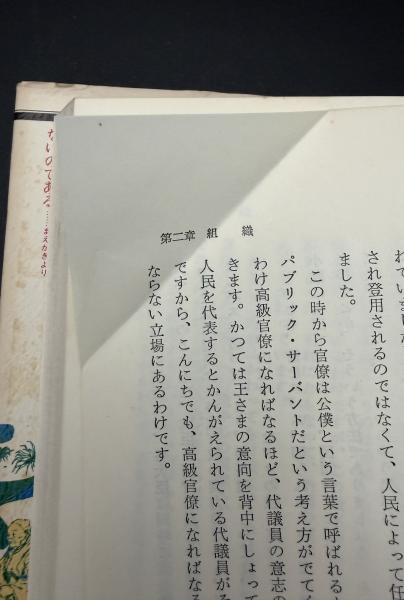 れていました
され登用されるのではなくて、人民によって任
ました。
この時から官僚は公僕という言葉で呼ばれる
パブリック・サーバントだという考え方がでてく
わけ高級官僚になればなるほど、代議員の意志の
きます。かつては王さまの意向を背中にしょって
人民を代表するとかんがえられている代議員がそ
ですから、こんにちでも、高級官僚になればなる
ならない立場にあるわけです。
第二章 組 織
ないのである……まえがきより